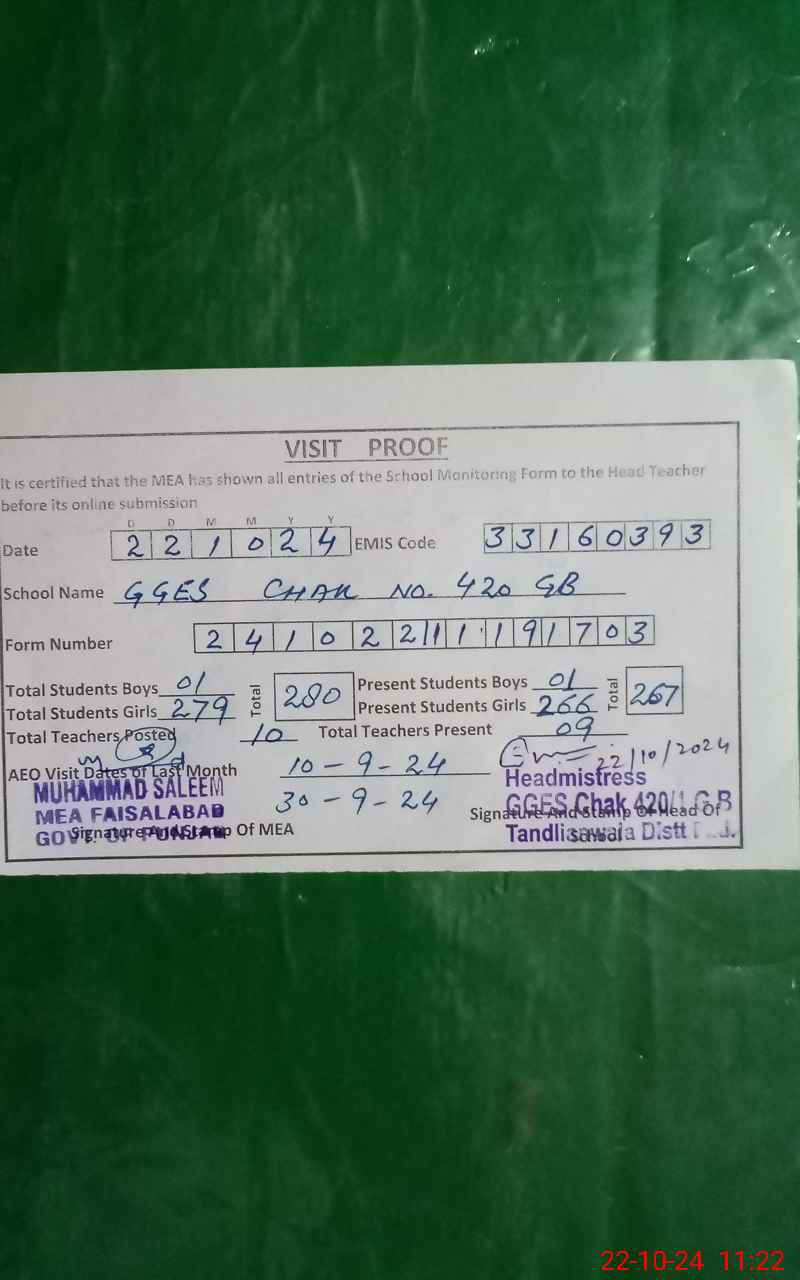 VISIT PROOF
It is certified that the MEA has shown all entries of the School Monitoring Form to the Head Teacher
before its online submission
D D M M Y Y
Date 2 2 1 0 2 4 EMIS Code 3 3 1 6 0 3 9 3
School Name GGES CHAK NO. 420 GB
Form Number 2 4 1 0 2 2 1 1 1 1 9 1 7 0 3
Total Students Boys 01 Total 280 Present Students Boys 01 Total 267
Total Students Girls 279 Present Students Girls 266
Total Teachers Posted 10 Total Teachers Present 09
22/10/2024
AEO Visit Dates of Last Month 10-9-24
30-9-24
MUHAMMAD SALEEM
MEA FAISALABAD
GOVT. OF PUNJAB
Signature And Stamp Of MEA
Headmistress
GGES Chak 420
Tandliaawala Distt
Signature And Stamp Of Head Of
School
22-10-24 11:22